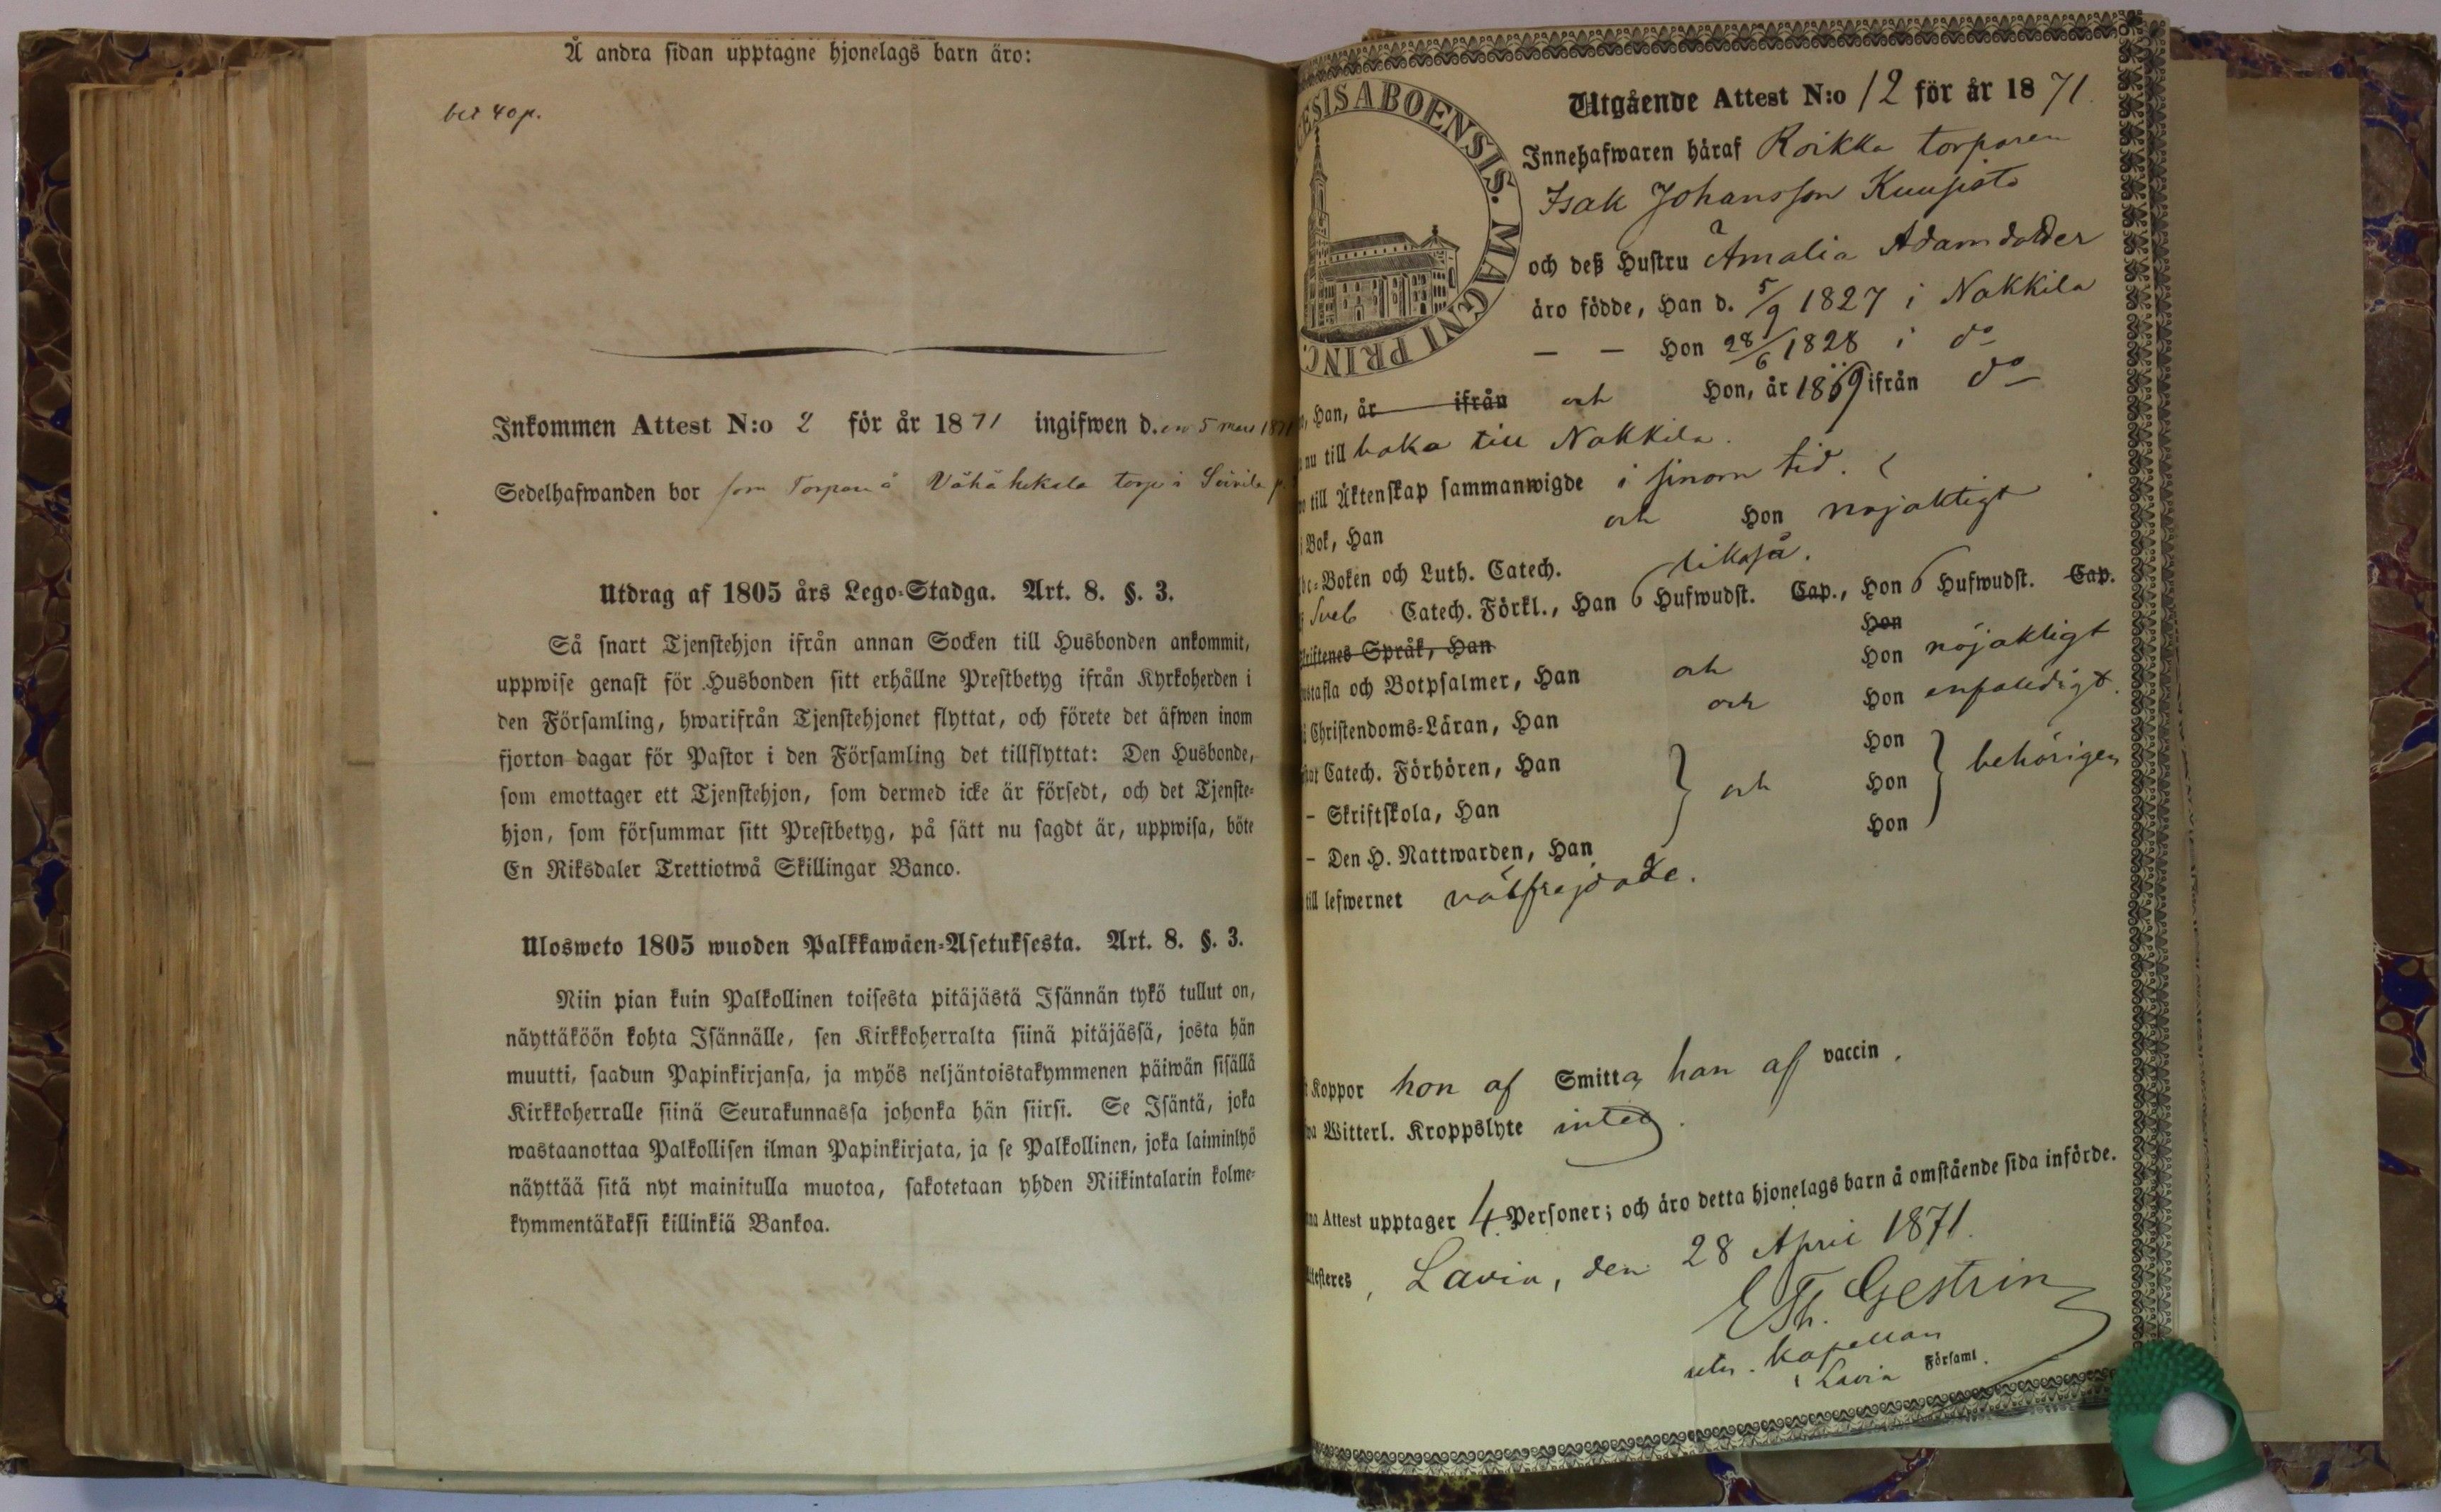 Å andra sidan upptagne hjonelags barn äro:
bet 40 p.
Inkommen Attest N:o 2 för år 1871 ingifwen d. en 5 mars 1871
Sedelhafwanden bor som Torpare å Vähähekala torp i Soinila
Utdrag af 1805 års Lego-Stadga. Art. 8. §. 3.
Så snart Tjenstehjon ifrån annan Socken till Husbonden ankommit,
uppwise genast för Husbonden sitt erhållne Prestbetyg ifrån Kyrkoherden i
den Församling, hwarifrån Tjenstehjonet flyttat, och förete det äfwen inom
fjorton dagar för Pastor i den Församling det tillflyttat: Den Husbonde,
som emottager ett Tjenstehjon, som dermed icke är försedt, och det Tjenste-
hjon, som försummar sitt Prestbetyg, på sätt nu sagdt är, uppwisa, böte
En Riksdaler Trettiotwå Skillingar Banco.
Ulosweto 1805 wuoden Palkkawäen-Asetuksesta. Art. 8. §. 3.
Niin pian kuin Palkollinen toisesta pitäjästä Isännän tykö tullut on,
näyttäköön kohta Isännälle, sen Kirkkoherralta siinä pitäjässä, josta hän
muutti, saadun Papinkirjansa, ja myös neljäntoistakymmenen päiwän sisällä
Kirkkoherralle siinä Seurakunnassa johonka hän siirsi. Se Isäntä, joka
wastaanottaa Palkollisen ilman Papinkirjata, ja se Palkollinen, joka laiminlyö
näyttää sitä nyt mainitulla muotoa, sakotetaan yhden Riikintalarin kolme-
kymmentäkaksi killinkiä Bankoa.
CESIS ABOENSIS. MAGNI PRINC.
Utgående Attest N:o 12 för år 1871.
Innehafwaren häraf Roikka torparen
Isak Johansson Kuusisto
och deß Hustru Amalia Adamsdotter
äro födde, Han d. 5/9 1827 i Nakkila
— — Hon 28/6 1828 i do
Han, år ifrån och Hon, år 1869 ifrån do
nu till baka till Nakkila.
till Äktenskap sammanwigde i sinom tid.
Bok, Han och Hon nöjaktigt
-Boken och Luth. Catech. likaså.
Sveb Catech. Förkl., Han 6 Hufwudst. Cap., Hon 6 Hufwudst. Cap.
Skriftenes Språk, Han Hon
tafla och Botpsalmer, Han och Hon nöjaktigt
Christendoms-Läran, Han och Hon enfaldigt.
Catech. Förhören, Han Hon
- Skriftskola, Han och Hon behörigen
- Den H. Nattwarden, Han Hon
till lefwernet välfrejdade.
Koppor hon af Smitta, han af vaccin.
Witterl. Kroppslyte intet.
Attest upptager 4 Personer; och äro detta hjonelags barn å omstående sida införde.
Attesteres, Lavia, den 28 April 1871.
E Th. Gestrin
Kapellan
i Lavia Församl.